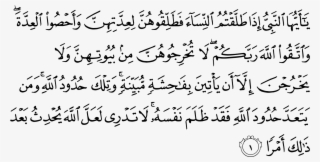 يَٰٓأَيُّهَا ٱلنَّبِىُّ إِذَا طَلَّقْتُمُ ٱلنِّسَآءَ فَطَلِّقُوهُنَّ لِعِدَّتِهِنَّ وَأَحْصُوا۟ ٱلْعِدَّةَ ۖ
وَٱتَّقُوا۟ ٱللَّهَ رَبَّكُمْ ۖ لَا تُخْرِجُوهُنَّ مِنۢ بُيُوتِهِنَّ وَلَا
يَخْرُجْنَ إِلَّآ أَن يَأْتِينَ بِفَٰحِشَةٍ مُّبَيِّنَةٍ ۚ وَتِلْكَ حُدُودُ ٱللَّهِ ۚ وَمَن
يَتَعَدَّ حُدُودَ ٱللَّهِ فَقَدْ ظَلَمَ نَفْسَهُۥ ۚ لَا تَدْرِى لَعَلَّ ٱللَّهَ يُحْدِثُ بَعْدَ
ذَٰلِكَ أَمْرًا ١